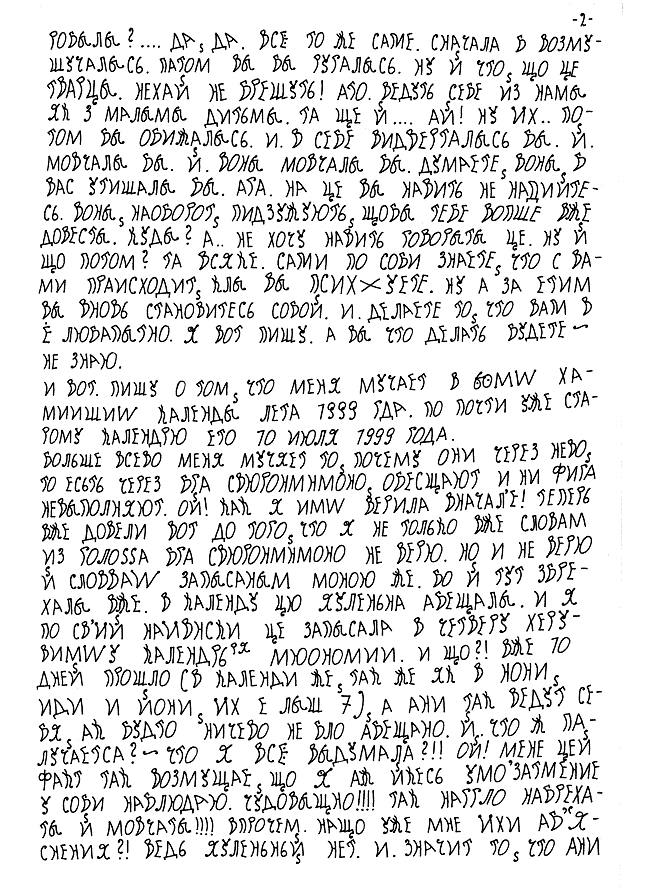 -2-
ГОВЫЛЫ?.... ДА, ДА. ВСЕ ТО ЖЕ САМЕ. СНАЧАЛА В ВОЗМУ-
ШЧАЛЫСЬ. ПАТОМ ВЫ ВЫ РУГАЛЫСЬ. НУ Й ЧТО, ЩО ЦЕ
ТВАРЦЫ. НЕХАЙ НЕ БРЕШУТЬ! АГО. ВЕДУТЬ СЕБЕ ИЗ НАМЫ
ЯК З МАЛЫМЫ ДИТЬМЫ. ТА ЩЕ Й.... АЙ! НУ ИХ.. ПО-
ТОМ ВЫ ОБИЖАЛЫСЬ. И. В СЕБЕ ВИДВЕРТАЛЫСЬ ВЫ. Й.
МОВЧАЛЫ ВЫ. Й. ВОНЫ МОВЧАЛЫ ВЫ. ДУМАЕТЕ, ВОНЫ, В
ВАС УТИШАЛЫ БЫ. АГА. НА ЦЕ ВЫ НАВИТЬ НЕ НАДИЙТЕ-
СЬ. ВОНЫ, НАОБОРОТ, ПИДЗУЖУЮТЬ, ЩОБЫ ТЕБЕ ВОПШЕ ВЖЕ
ДОВЕСТЫ. КУДЫ? А.. НЕ ХОЧУ НАВИТЬ ГОВОРЫТЫ ЦЕ. НУ Й
ЩО ПОТОМ? ТА ВСЯКЕ. САМИ ПО СОБИ ЗНАЕТЕ, ЧТО С ВА-
МИ ПРАИСХОДИТ, КЛЫ ВЫ ПСИХУЕТЕ. НУ А ЗА ЕТИМ
ВЫ ВНОВЬ СТАНОВИТЕСЬ СОБОЙ. И. ДЕЛАЕТЕ ТО, ЧТО ВАМ В
Е ЛЮБАПЫТНО. Я ВОТ ПИШУ. А ВЫ ЧТО ДЕЛАТЬ БУДЕТЕ ~
НЕ ЗНАЮ.
И ВОТ. ПИШУ О ТОМ, ЧТО МЕНЯ МУЧАЕТ В ХА-
МИИШИW КАЛЕНДЫ ЛЕТА 1999 ГДА. ПО ПОЧТИ УЖЕ СТА-
РОМУ КАЛЕНДРЮ ЕТО 10 ИЮЛЯ 1999 ГОДА.
БОЛЬШЕ ВСЕВО МЕНЯ МУЧЯЕТ ТО, ПОЧЕМУ ОНИ ЧЕРЕЗ НЕВО,
ТО ЕСТЬ ЧЕРЕЗ БГА СВЮРОНМИНМОНО, ОБЕСЩАЮТ И НИ ФИГА
НЕВЫПОЛНЯЮТ. ОЙ! КАК Я ИМW ВЕРИЛА ВНАЧАЛ'Е! ТЕПЕРЬ
ВЖЕ ДОВЕЛИ ВОТ ДО ТОГО, ЧТО Я НЕ ТОЛЬКО ВЖЕ СЛОВАМ
ИЗ ГОЛОSSА БГА СВЮРОНМИНМОНО НЕ ВЕРЮ. НО И НЕ ВЕРЮ
Й СЛОВВАW ЗАПЫСАНЫМ МОНОЮ ЖЕ. БО Й ТУТ ЗБРЕ-
ХАЛЫ ВЖЕ. В КАЛЕНДУ ЦЮ ЯУЛЕНЬНЯ АБЕЩАЛЫ. И Я
ПО СВ'ИЙ НАИВНСКИ ЦЕ ЗАПЫСАЛА В ЧЕТВЕРУ ХЕРУ-
ВИМWУ КАЛЕНДРЬ МЮОНОМИИ. И ЩО?! ВЖЕ 10
ДНЕЙ ПРОШЛО (В КАЛЕНДИ ЖЕ, ТАК ЖЕ ЯК В НОНИ,
ИДИ И ЙОНИ, ИХ Е ЛЫШ 7), А АНИ ТАК ВЕДУТ СЕ-
БЯ, АК БУДТО НИЧЕВО НЕ БЛО АБЕЩАНО. Й. ЧТО Ж ПА-
ЛУЧАЕТСА? ~ ЧТО Я ВСЁ ВЫДУМАЛА?!! ОЙ! МЕНЕ ЦЕЙ
ФАКТ ТАК ВОЗМУЩАЕ, ЩО Я АЖ ЙКЕСЬ УМО'ЗАТМЕНИЕ
У СОБИ НАБЛЮДАЮ. ЧУДОВЫЩНО!!!! ТАК НАГГЛО НАБРЕХА-
ТЫ Й МОВЧАТЫ!!!! ВПРОЧЕМ. НАЩО УЖЕ МНЕ ИХИ АБ"Я-
СНЕНИЯ?! ВЕДЬ ЯУЛЕНЬНЫЙ НЕТ. И. ЗНАЧИТ ТО, ЧТО АНИ